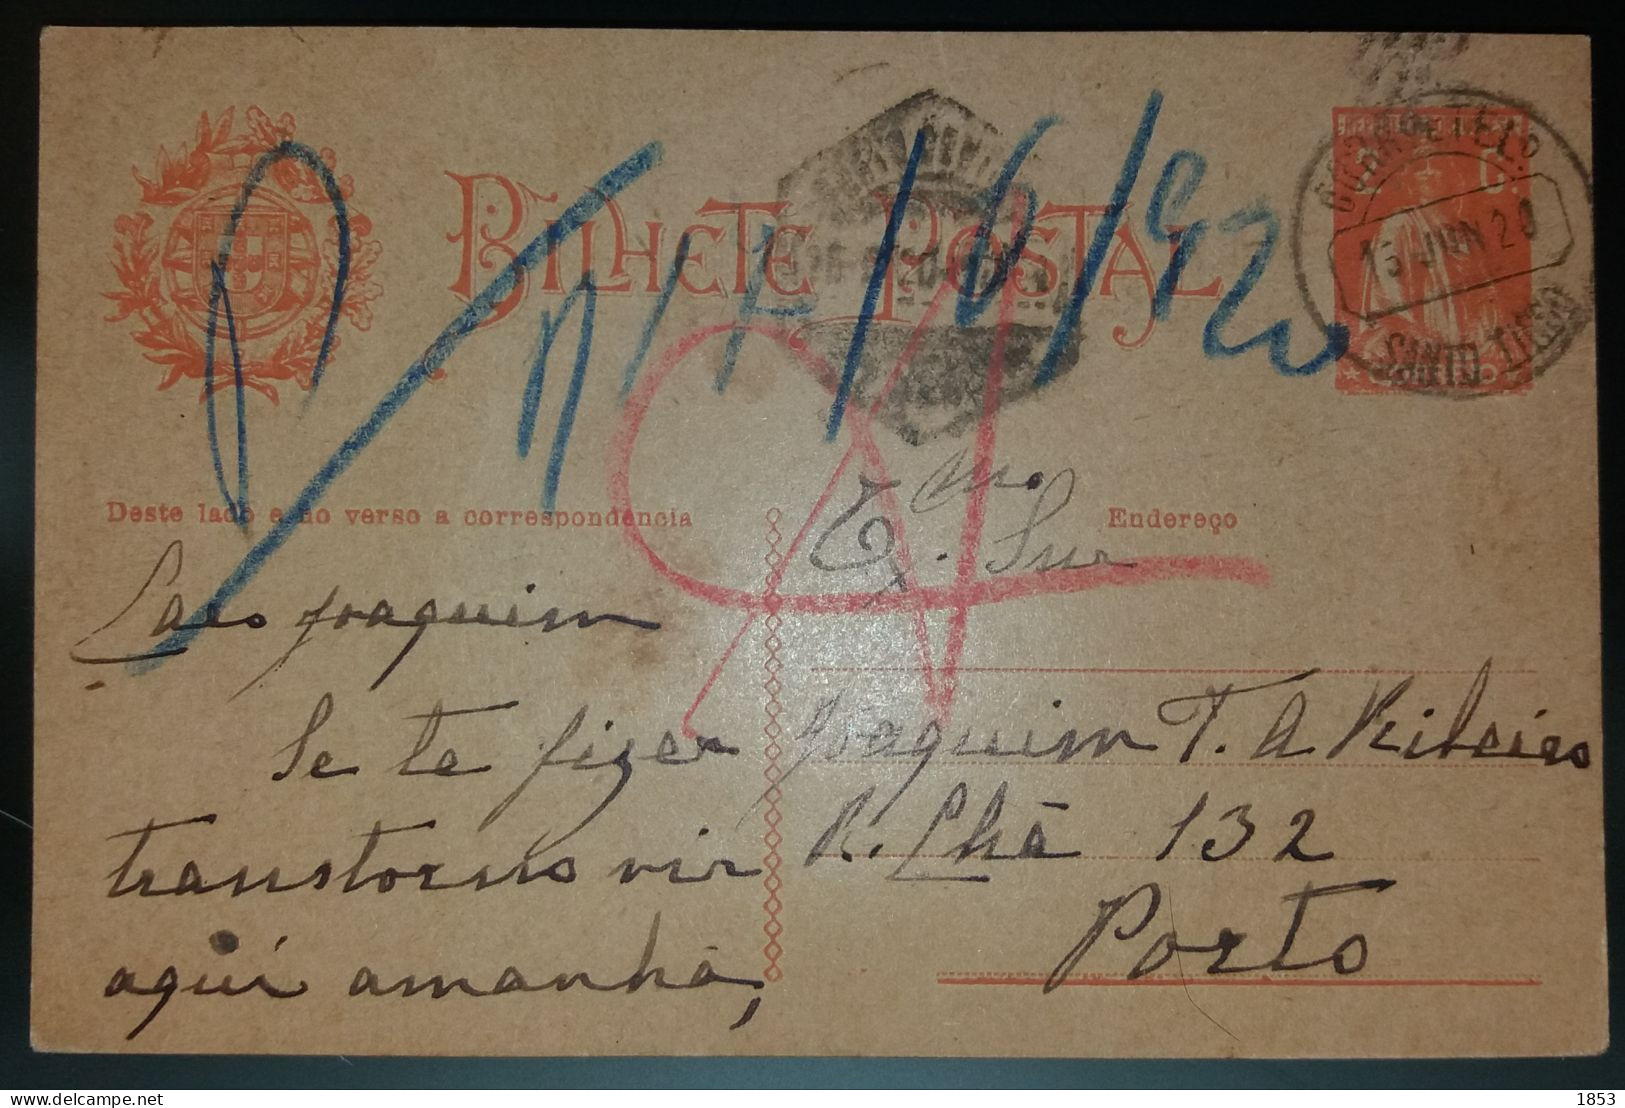 BILHETE POSTAL
CORR E TELO
15 JUN 20
SANTO TIRSO
Deste lado e no verso a correspondencia
Endereço
Exmo. Snr
Caro Joaquim
Se te fizer
transtorno vir
aqui amanhã,
Joaquim T. A Ribeiro
R. Chã 132
Porto
1853